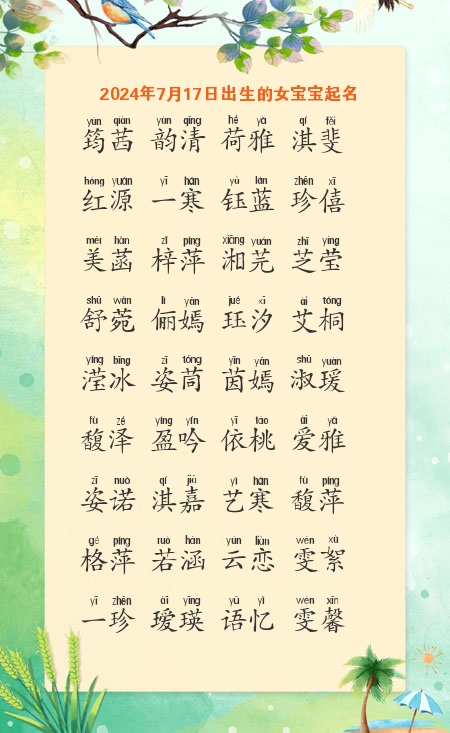 2024年7月17日出生的女宝宝起名
yún qiàn yùn qīng hé yǎ qí fěi
筠茜 韵清 荷雅 淇斐
hóng yuán yī hán yù lán zhēn xī
红源 一寒 钰蓝 珍僖
měi hàn zǐ píng xiāng yuán zhī yíng
美菡 梓萍 湘芫 芝莹
shū wǎn lì yān jué xī ài tóng
舒菀 俪嫣 珏汐 艾桐
yíng bīng zī tóng yīn yān shū yuàn
滢冰 姿茼 茵嫣 淑瑗
fù zé yíng yín yī táo ài yǎ
馥泽 盈吟 依桃 爱雅
zī nuò qí jiā yì hán fù píng
姿诺 淇嘉 艺寒 馥萍
gé píng ruò hán yún liàn wén xù
格萍 若涵 云恋 雯絮
yī zhēn ài yīng yǔ yì wén xīn
一珍 瑷瑛 语忆 雯馨